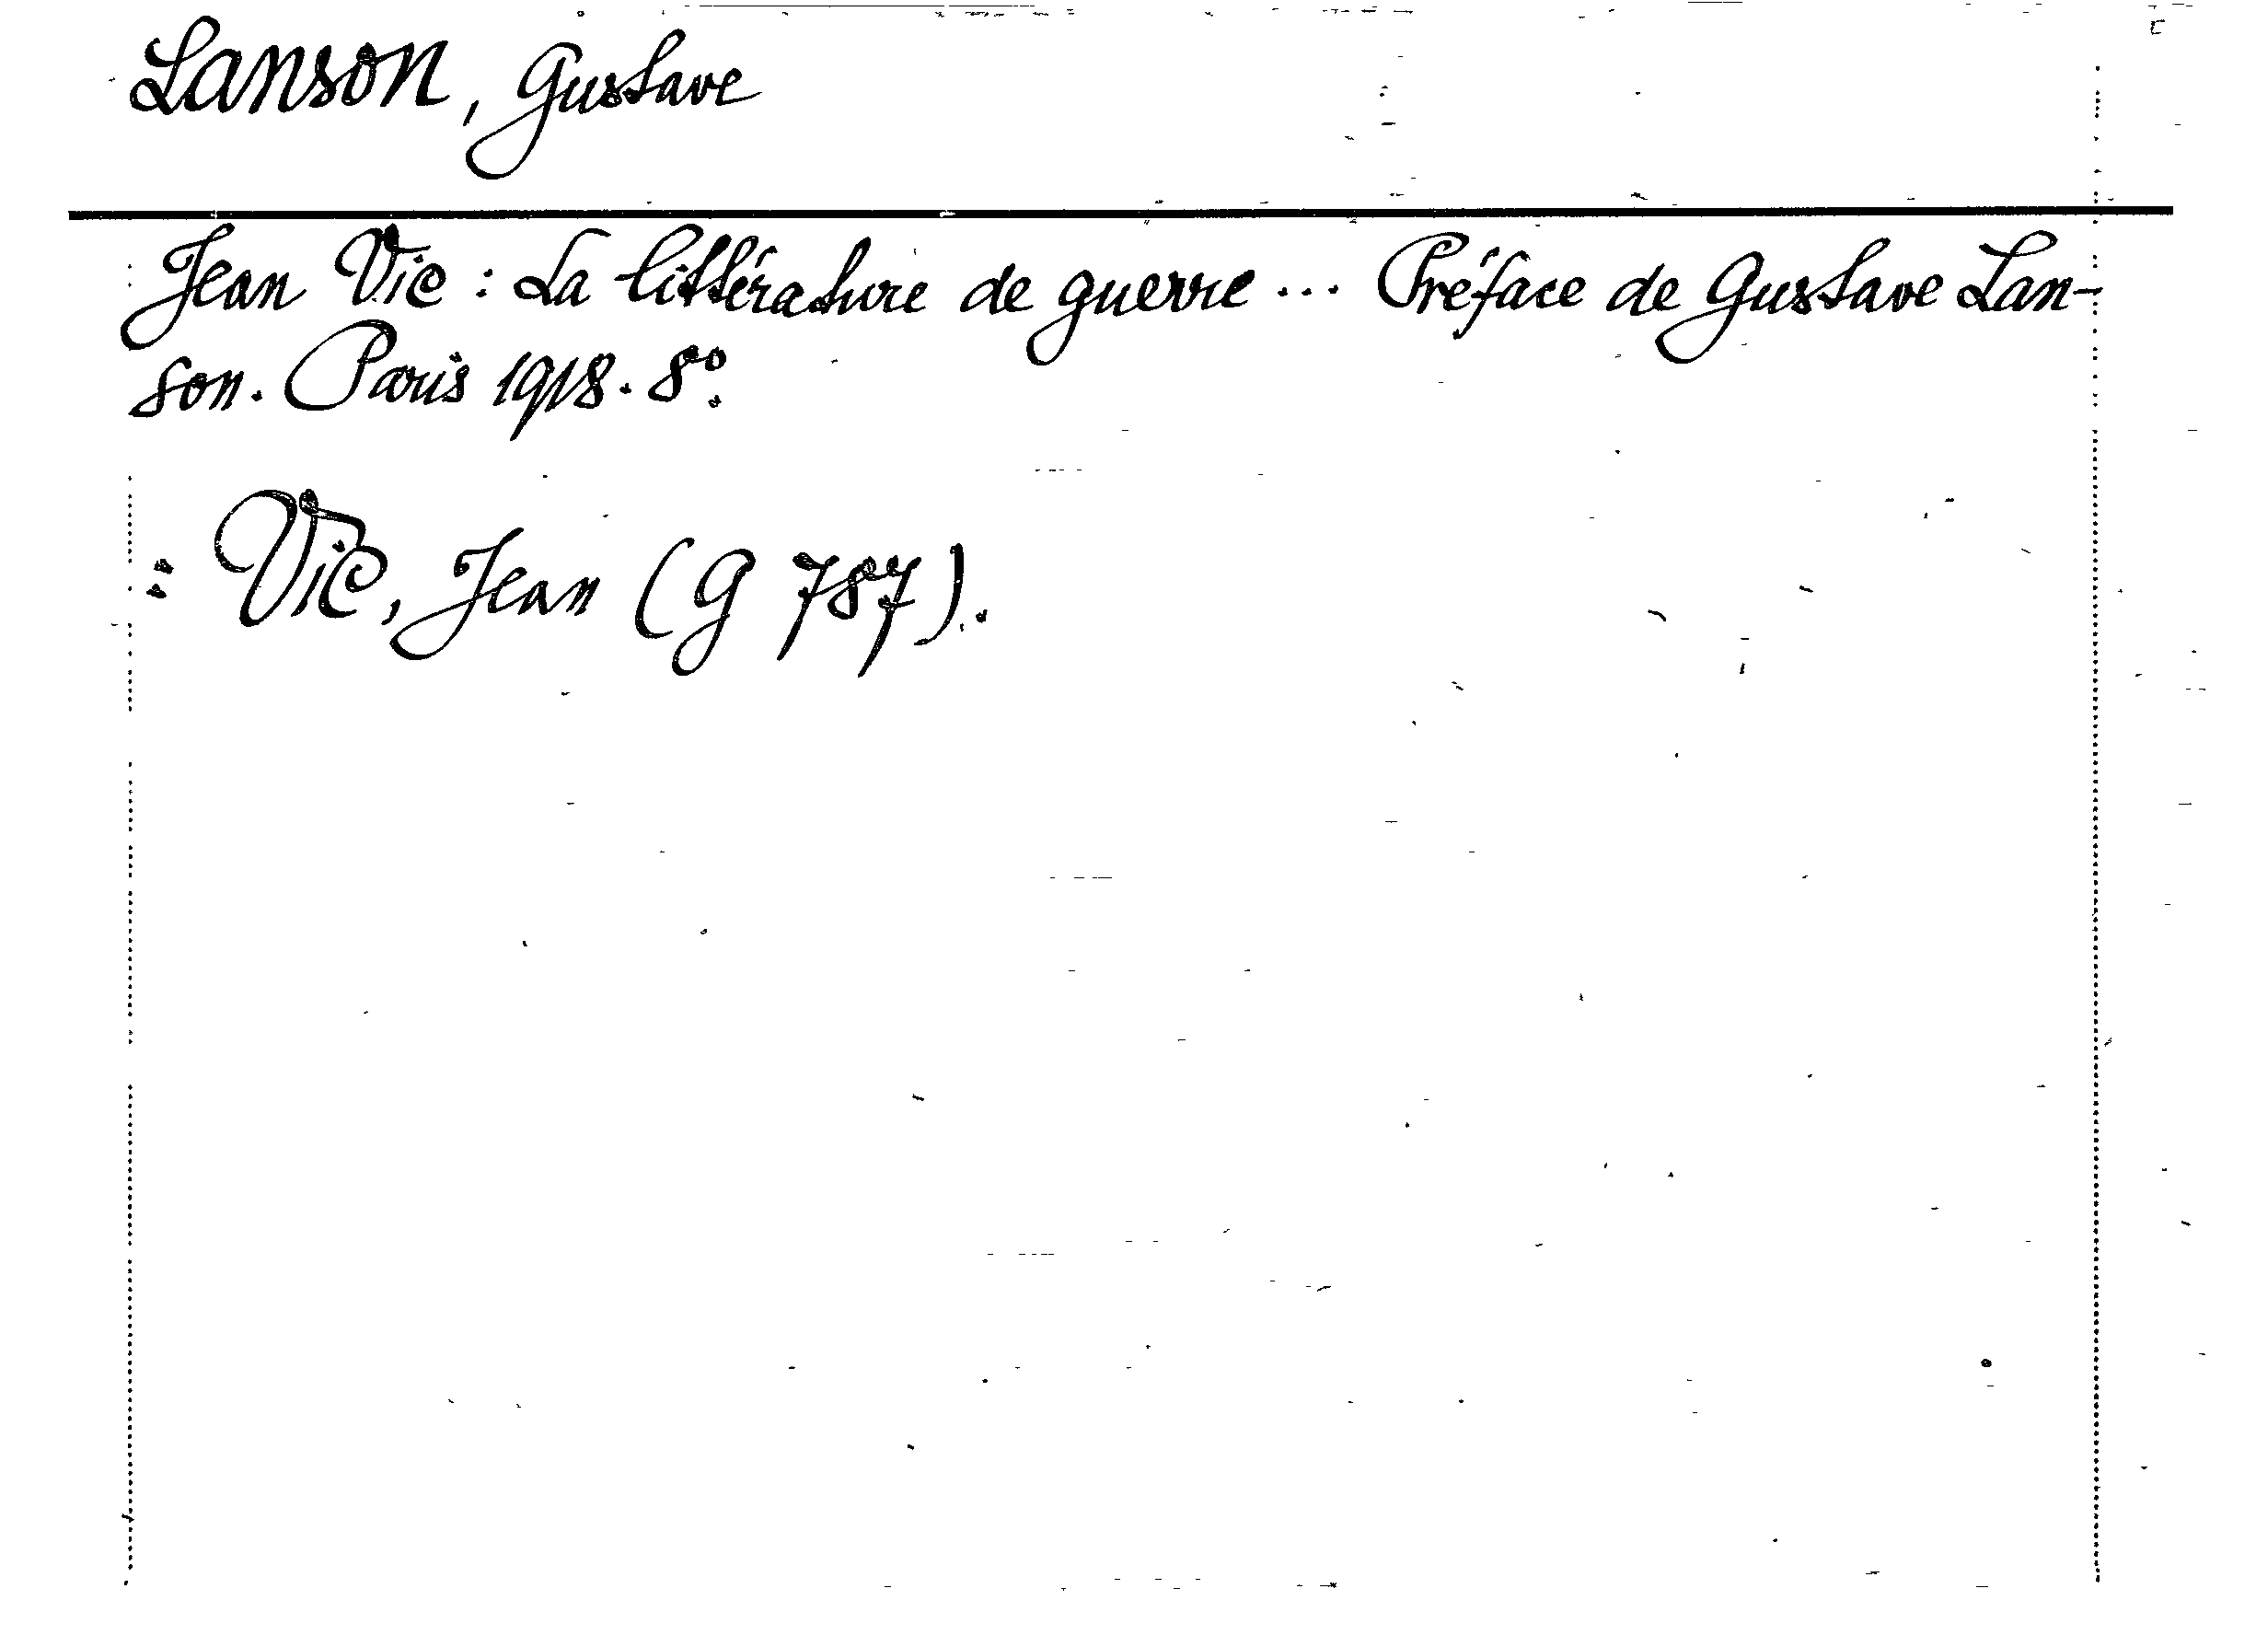 Lanson, Gustave
Jean Vic : La littérature de guerre ... Préface de Gustave Lan-
son. Paris 1918. 8º.
: Vic, Jean (G 787).